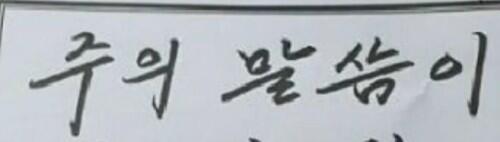 주의 말씀이